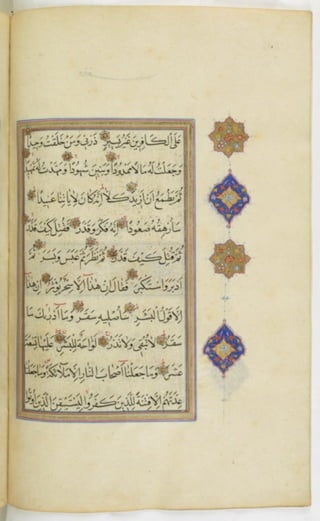 على الكافرين غير يسير ذرني ومن خلقت وحيدا
وجعلت له مالا ممدودا وبنين شهودا ومهدت له تمهيدا
ثم يطمع ان ازيد كلا انه كان لاياتنا عنيدا
سارهقه صعودا انه فكر وقدر فقتل كيف قدر
ثم قتل كيف قدر ثم نظر ثم عبس وبسر ثم
ادبر واستكبر فقال ان هذا الا سحر يؤثر ان هذا
الا قول البشر ساصليه سقر وما ادريك ما
سقر لا تبقي ولا تذر لواحة للبشر عليها تسعة
عشر وما جعلنا اصحاب النار الا ملائكة وما جعلنا
عدتهم الا فتنة للذين كفروا ليستيقن الذين اوتوا